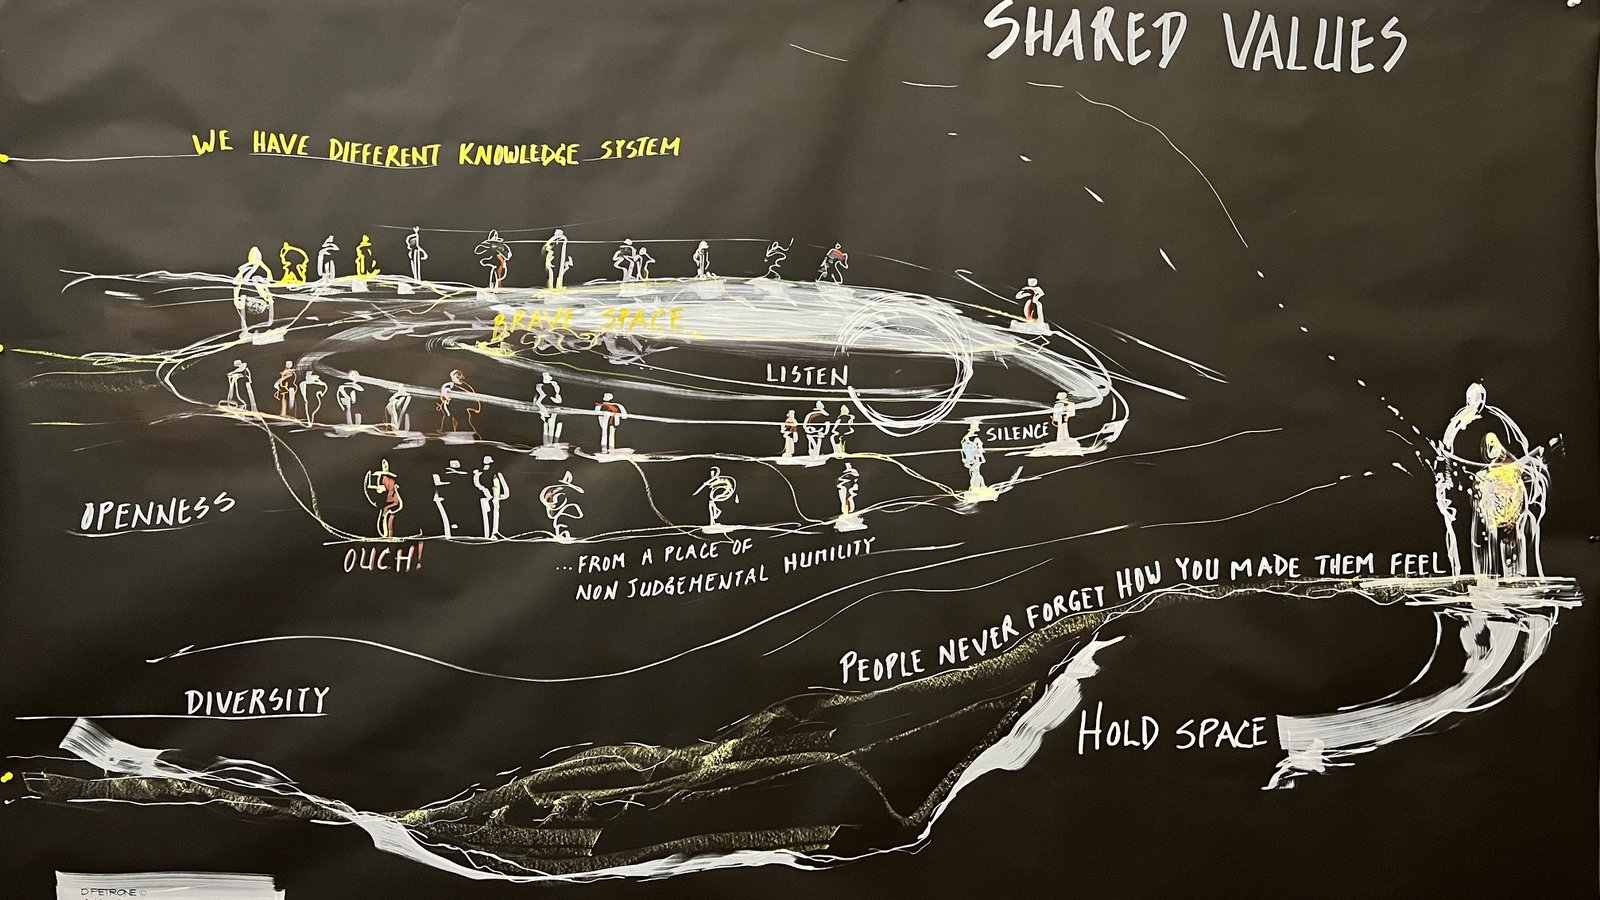 SHARED VALUES
WE HAVE DIFFERENT KNOWLEDGE SYSTEM
BRAVE SPACE
LISTEN
SILENCE
OPENNESS
OUCH!
...FROM A PLACE OF
NON JUDGEMENTAL HUMILITY
PEOPLE NEVER FORGET HOW YOU MADE THEM FEEL
DIVERSITY
HOLD SPACE
D PETRONE ©